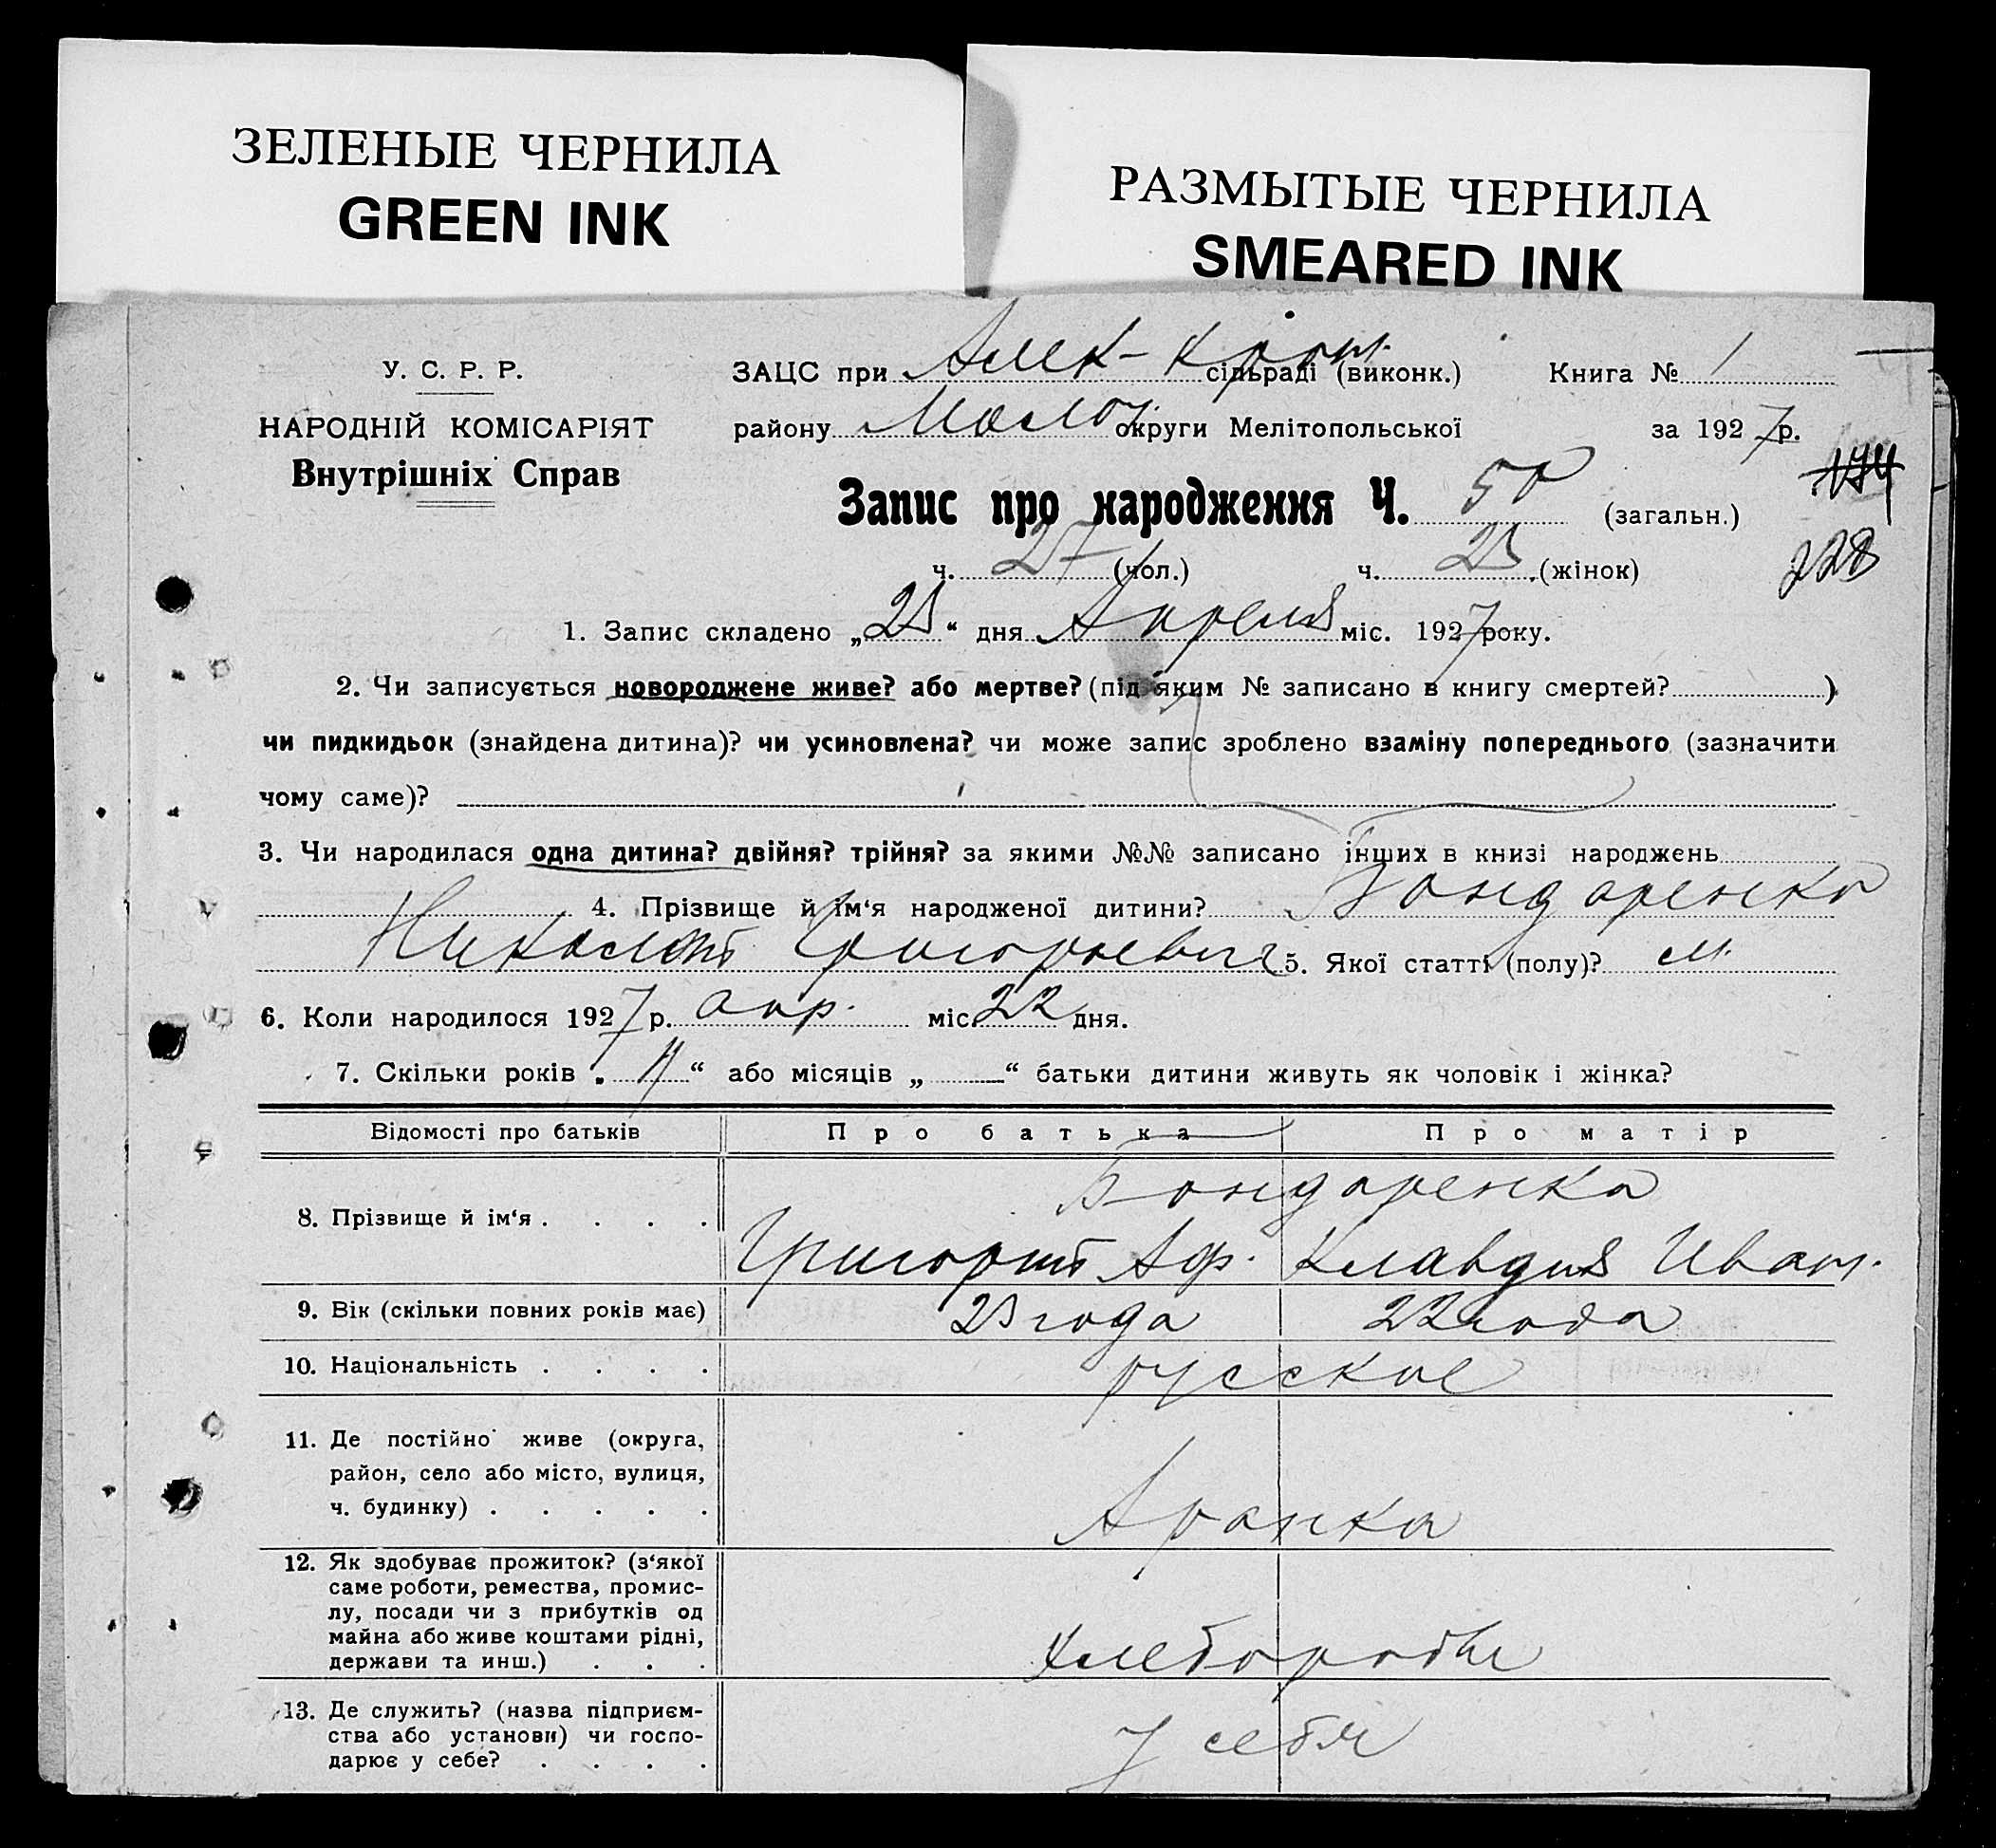 ЗЕЛЕНЫЕ ЧЕРНИЛА
GREEN INK
РАЗМЫТЫЕ ЧЕРНИЛА
SMEARED INK
У. С. Р. Р.
НАРОДНІЙ КОМІСАРІЯТ
Внутрішніх Справ
ЗАЦС при Алек- сільраді (виконк.) Книга № 1
району округи Мелітопольської за 1927 р.
174
Запис про народження Ч. 50 (загальн.)
ч. 27 (чол.) ч. 23 (жінок)
228
1. Запис складено „23“ дня Апреля міс. 1927 року.
2. Чи записується новороджене живе? або мертве? (під яким № записано в книгу смертей? )
чи пидкидьок (знайдена дитина)? чи усиновлена? чи може запис зроблено взаміну попереднього (зазначити
чому саме)?
3. Чи народилася одна дитина? двійня? трійня? за якими №№ записано інших в книзі народжень
4. Прізвище й ім‘я народженої дитини? Бондаренко
Николай Григорьевич 5. Якої статті (полу)? м.
6. Коли народилося 1927 р. апр. міс. 22 дня.
7. Скільки років „ “ або місяців „ “ батьки дитини живуть як чоловік і жінка?
Відомості про батьків Про батька Про матір
8. Прізвище й ім‘я . . . . . Бондаренка
Григорий Аф. Клавдия Иван.
9. Вік (скільки повних років має) 23 года 22 года
10. Національність . . . . русские
11. Де постійно живе (округа,
район, село або місто, вулиця,
ч. будинку) . . . . .
12. Як здобуває прожиток? (з‘якої
саме роботи, ремества, промис-
лу, посади чи з прибутків од
майна або живе коштами рідні,
держави та инш.) . . . Хлеборобы
13. Де служить? (назва підприєм-
ства або установи) чи госпо-
дарює у себе? . . . . У себя